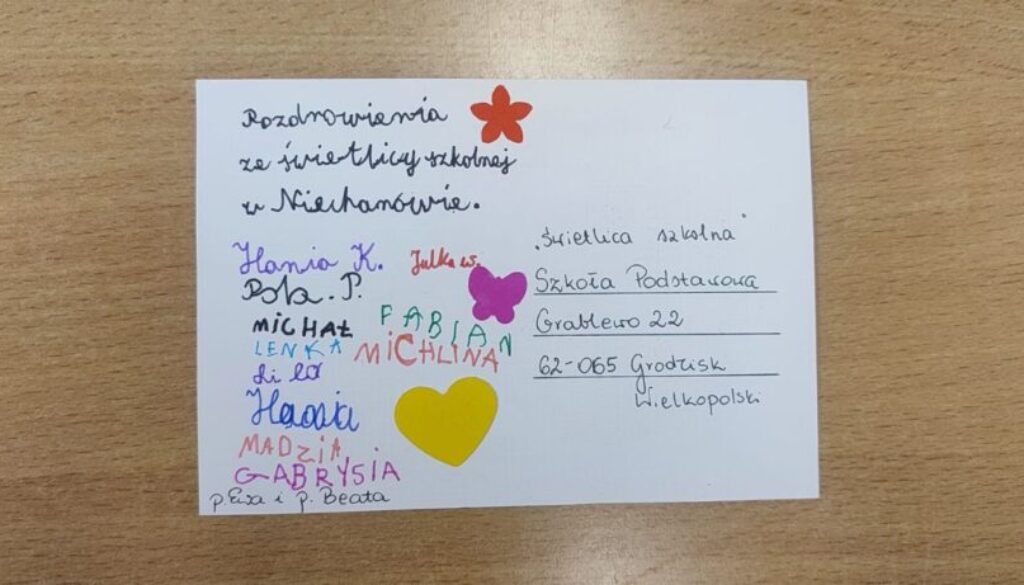 Pozdrowienia
ze świetlicy szkolnej
w Niechanowie.
Hania K.
Julka w.
P.
MICHAŁ
FABIAN
LENKA
MICHLINA
Lila
MADZIA
GABRYSIA
p. Ewa i p. Beata
"Świetlica szkolna"
Szkoła Podstawowa
Grablewo 22
62-065 Grodzisk
Wielkopolski